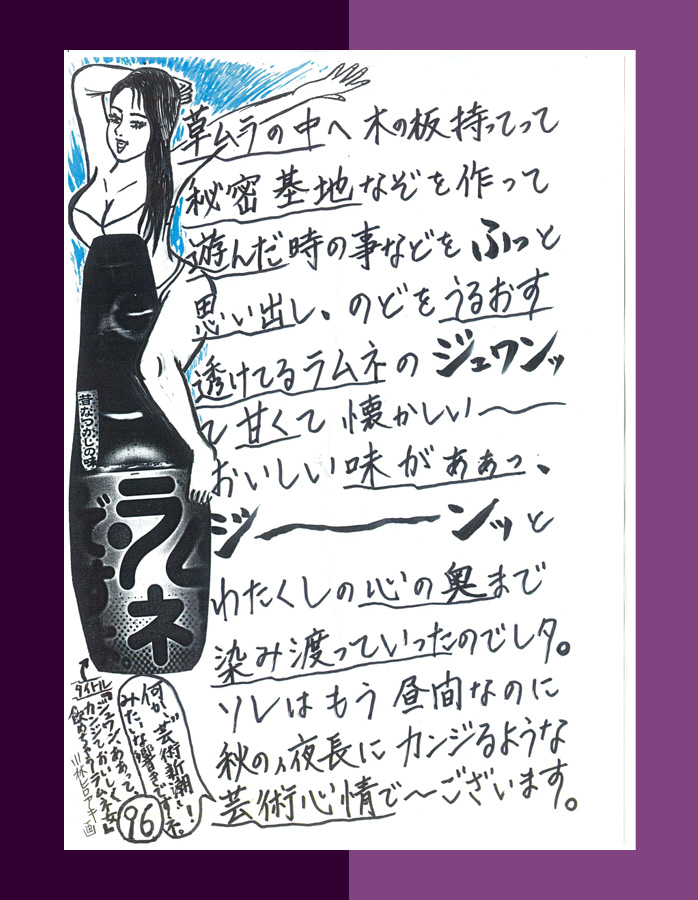 草ムラの中へ 木の板持ってって
秘密基地なぞを作って
遊んだ時の事などを ふっと
思い出し、のどをうるおす
透けてるラムネの ジュワンッ
て甘くて 懐かしい〜
おいしい味がぁぁっ、
ジ〜ンッと
わたくしの心の奥まで
染み渡っていったのでしタ。
ソレはもう 昼間なのに
秋の、夜長に カンジるような
芸術心情で〜ございます。
昔なつかしの味
ラムネ
です。
タイトル
『ジュワン、ああって、
カンジでおいしく
飲めちゃうラムネ女』
三林ヒロアキ画
何か、芸術新潮
みたいな響きですネ。
96